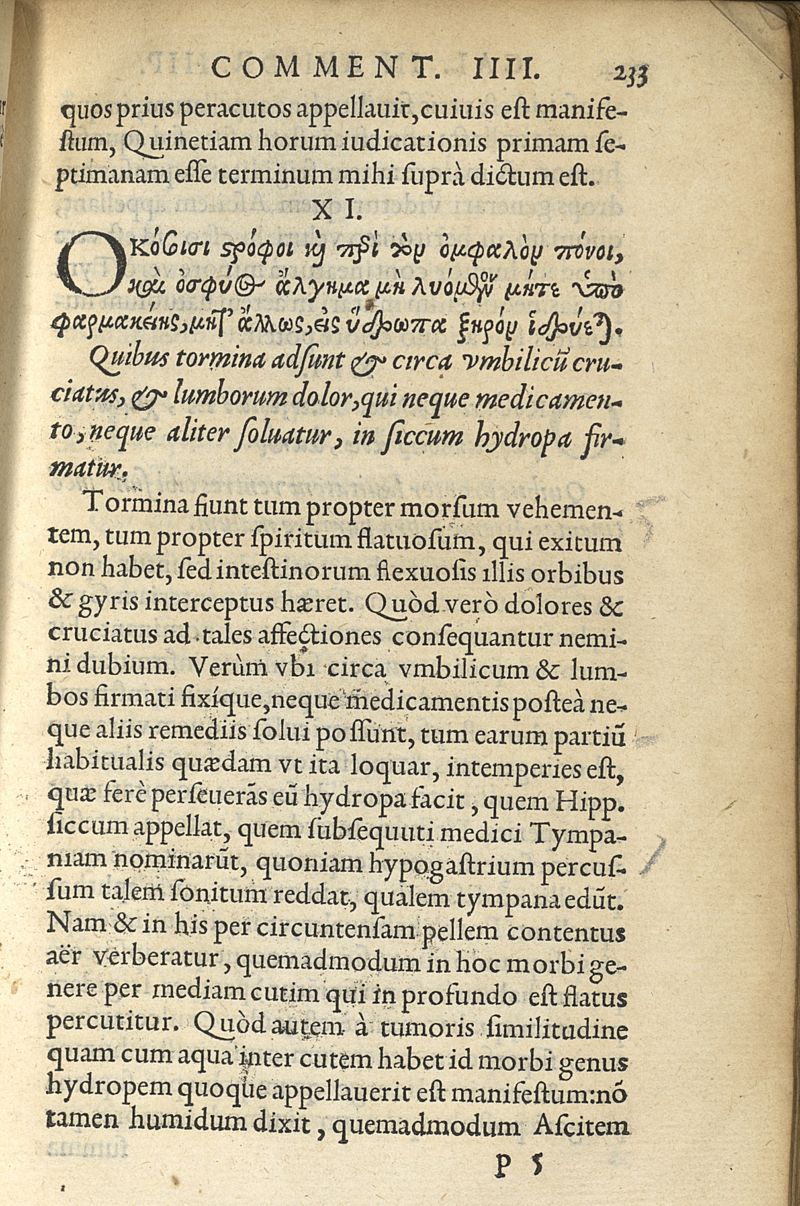 COMMENT. IIII. 233
quos prius peracutos appellauit, cuiuis est manife-
stum, Quinetiam horum iudicationis primam se-
ptimanam esse terminum mihi suprà dictum est.
XI.
Οκόσισι στρόφοι καὶ περὶ τὸν ὀμφαλὸν πόνοι,
καὶ ὀσφύος ἄλγημα μὴ λυόμενον μήτε ὑπὸ
φαρμακείης, μήτ' ἄλλως, εἰς ὕδρωπα ξηρὸν ἱδρύεται.
Quibus tormina adsunt & circa vmbilicũ cru-
ciatus, & lumborum dolor, qui neque medicamen-
to, neque aliter soluatur, in siccum hydropa fir-
matur.
Tormina fiunt tum propter morsum vehemen-
tem, tum propter spiritum flatuosum, qui exitum
non habet, sed intestinorum flexuosis illis orbibus
& gyris interceptus hæret. Quòd verò dolores &
cruciatus ad tales affectiones consequantur nemi-
ni dubium. Verùm vbi circa vmbilicum & lum-
bos firmati fixíque, neque medicamentis posteà ne-
que aliis remediis solui possunt, tum earum partiũ
habitualis quædam vt ita loquar, intemperies est,
quæ ferè perseuerãs eũ hydropa facit, quem Hipp.
siccum appellat, quem subsequuti medici Tympa-
niam nominarũt, quoniam hypogastrium percus-
sum talem sonitum reddat, qualem tympana edũt.
Nam & in his per circuntensam pellem contentus
aër verberatur, quemadmodum in hoc morbi ge-
nere per mediam cutim qui in profundo est flatus
percutitur. Quòd autem à tumoris similitudine
quam cum aqua inter cutem habet id morbi genus
hydropem quoque appellauerit est manifestum: nõ
tamen humidum dixit, quemadmodum Ascitem
P 5